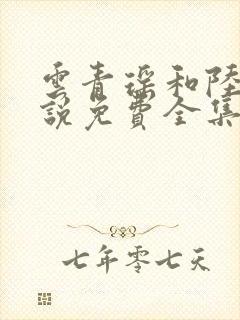 雲青瑤和陸
說免費全集
七年零七天